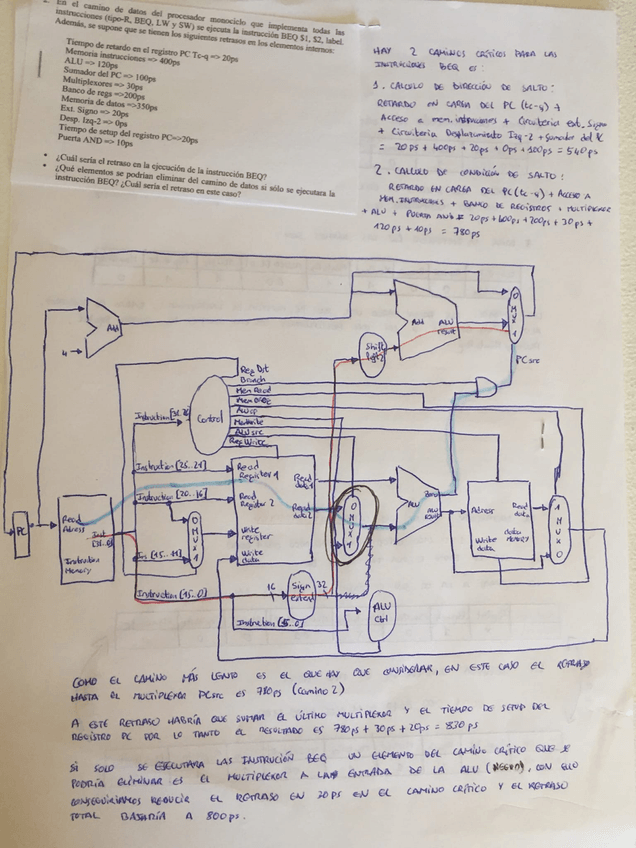 En el camino de datos del procesador monociclo que implementa todas las
instrucciones (tipo-R, BEQ, LW y SW) se ejecuta la instrucción BEQ $1, $2, label.
Además, se supone que se tienen los siguientes retrasos en los elementos internos:
Tiempo de retardo en el registro PC Tc-q => 20ps
Memoria instrucciones => 400ps
ALU => 120ps
Sumador del PC => 100ps
Multiplexores => 30ps
Banco de regs => 200ps
Memoria de datos => 350ps
Ext. Signo => 20ps
Desp. Izq-2 => 0ps
Tiempo de setup del registro PC => 20ps
Puerta AND => 10ps
• ¿Cuál sería el retraso en la ejecución de la instrucción BEQ?
• ¿Qué elementos se podrían eliminar del camino de datos si sólo se ejecutara la
instrucción BEQ? ¿Cuál sería el retraso en este caso?
HAY 2 CAMINOS CRÍTICOS PARA LAS
INSTRUCCIONES BEQ ES:
1. CALCULO DE DIRECCIÓN DE SALTO:
RETARDO EN CARGA DEL PC (tc-q) +
ACCESO A mem. instrucciones + Circuitería ext. Signo
+ Circuitería Desplazamiento Izq-2 + Sumador del PC
= 20ps + 400ps + 20ps + 0ps + 100ps = 540ps
2. CALCULO DE CONDICIÓN DE SALTO:
RETARDO EN CARGA DEL PC (tc-q) + ACCESO A
MEM. INSTRUCCIONES + BANCO DE REGISTROS + MULTIPLEXOR
+ ALU + PUERTA AND = 20ps + 400ps + 200ps + 30ps +
120ps + 10ps = 780ps
Add
4
Add
ALU
result
Shift
left 2
0
MUX
1
PCsrc
Reg Dst
Branch
Mem Read
ALUop
MemWrite
ALUsrc
RegWrite
Control
Instruction [31..26]
Instruction [25..21]
Instruction [20..16]
Ins [15..11]
Instruction [15..0]
Instruction [5..0]
PC
Read
Adress
Inst
[31..0]
Instruction
Memory
0
MUX
1
Read
Register 1
Read
Register 2
Write
register
Write
data
Read
data 1
Read
data 2
0
MUX
1
ALU
Zero
ALU
result
Adress
Write
data
Read
data
data
Memory
1
MUX
0
16
Sign
extend
32
ALU
Ctrl
COMO EL CAMINO MÁS LENTO ES EL QUE HAY QUE CONSIDERAR, EN ESTE CASO EL RETRASO
HASTA EL MULTIPLEXOR PCsrc ES 780ps (camino 2)
A ESTE RETRASO HABRÍA QUE SUMAR EL ÚLTIMO MULTIPLEXOR Y EL TIEMPO DE SETUP DEL
REGISTRO PC POR LO TANTO EL RESULTADO ES 780ps + 30ps + 20ps = 830ps
SI SOLO SE EJECUTARA LAS INSTRUCIÓN BEQ UN ELEMENTO DEL CAMINO CRÍTICO QUE SE
PODRÍA ELIMINAR ES EL MULTIPLEXOR A LA ENTRADA DE LA ALU (NEGRO), CON ELLO
CONSEGUIRIAMOS REDUCIR EL RETRASO EN 30ps EN EL CAMINO CRÍTICO Y EL RETRASO
TOTAL BAJARÍA A 800ps.